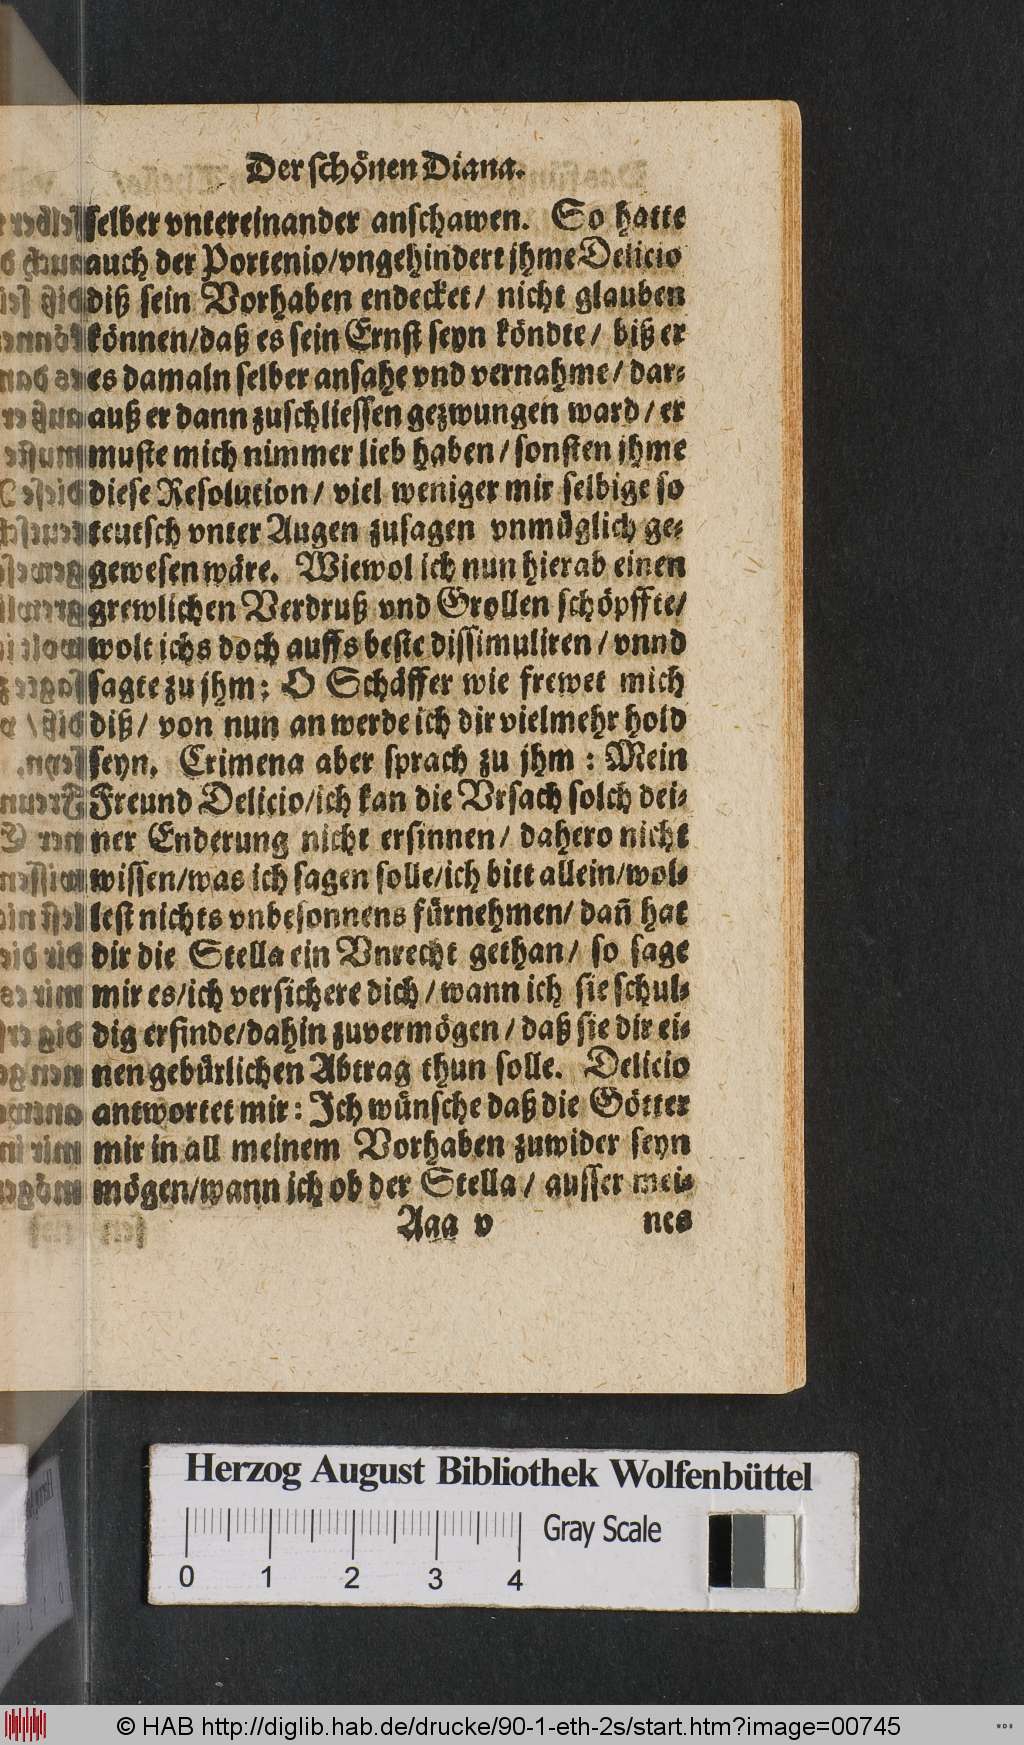 Der schönen Diana.
selber vntereinander anschawen. So hatte
auch der Portenio/vngehindert jhme Delicio
diß sein Vorhaben endecket/ nicht glauben
können/daß es sein Ernst seyn köndte/ biß er
es damaln selber ansahe vnd vernahme/ dar-
auß er dann zuschliessen gezwungen ward/ er
muste mich nimmer lieb haben/ sonsten jhme
diese Resolution/ viel weniger mir selbige so
teutsch vnter Augen zusagen vnmüglich ge-
gewesen wäre. Wiewol ich nun hierab einen
grewlichen Verdruß vnd Grollen schöpffte/
wolt ichs doch auffs beste dissimuliren/ vnnd
sagte zu jhm: O Schäffer wie frewet mich
diß/ von nun an werde ich dir vielmehr hold
seyn. Crimena aber sprach zu jhm: Mein
Freund Delicio/ich kan die Vrsach solch dei-
ner Enderung nicht ersinnen/ dahero nicht
wissen/was ich sagen solle/ich bitt allein/wol-
lest nichts vnbesonnens fürnehmen/ dañ hat
dir die Stella ein Vnrecht gethan/ so sage
mir es/ich versichere dich/ wann ich sie schul-
dig erfinde/dahin zuvermögen/ daß sie dir ei-
nen gebürlichen Abtrag thun solle. Delicio
antwortet mir: Ich wünsche daß die Götter
mir in all meinem Vorhaben zuwider seyn
mögen/wann ich ob der Stella/ ausser mei-
Aaa v nes
Herzog August Bibliothek Wolfenbüttel
0 1 2 3 4 Gray Scale
© HAB http://diglib.hab.de/drucke/90-1-eth-2s/start.htm?image=00745